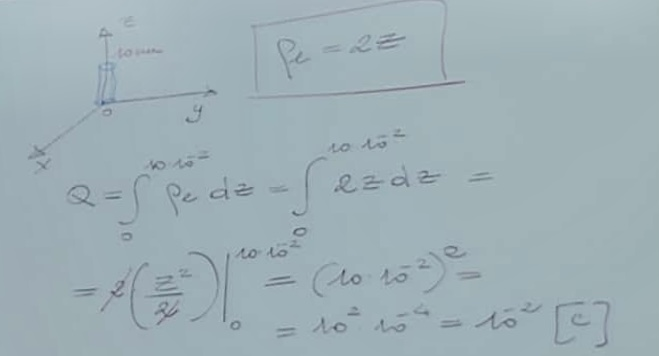 z
10 cm
ρℓ = 2z
0
y
x
Q = ∫₀^{10·10⁻²} ρℓ dz = ∫₀^{10·10⁻²} 2z dz =
= 2(z²/2)|₀^{10·10⁻²} = (10·10⁻²)² =
= 10² 10⁻⁴ = 10⁻² [C]